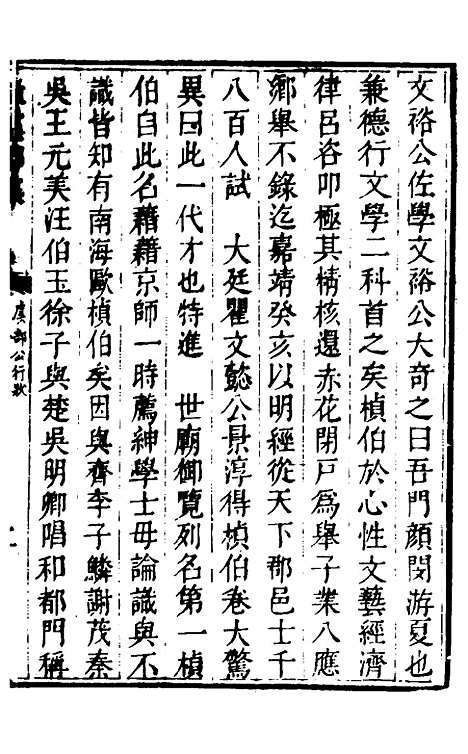 文裕公佐學文裕公大奇之曰吾門顏閔游夏也
兼德行文學二科首之矣楨伯於心性文藝經濟
律呂咨叩極其精核還赤花閉戸爲舉子業八應
鄉舉不錄迄嘉靖癸亥以明經從天下郡邑士千
八百人試 大廷瞿文懿公景淳得楨伯卷大驚
異曰此一代才也特進 世廟御覽列名第一楨
伯自此名藉藉京師一時薦紳學士毋論識與不
識皆知有南海歐楨伯矣因與齊李子鱗謝茂秦
吳王元美汪伯玉徐子與楚吳明卿唱和都門稱
虞部公行狀